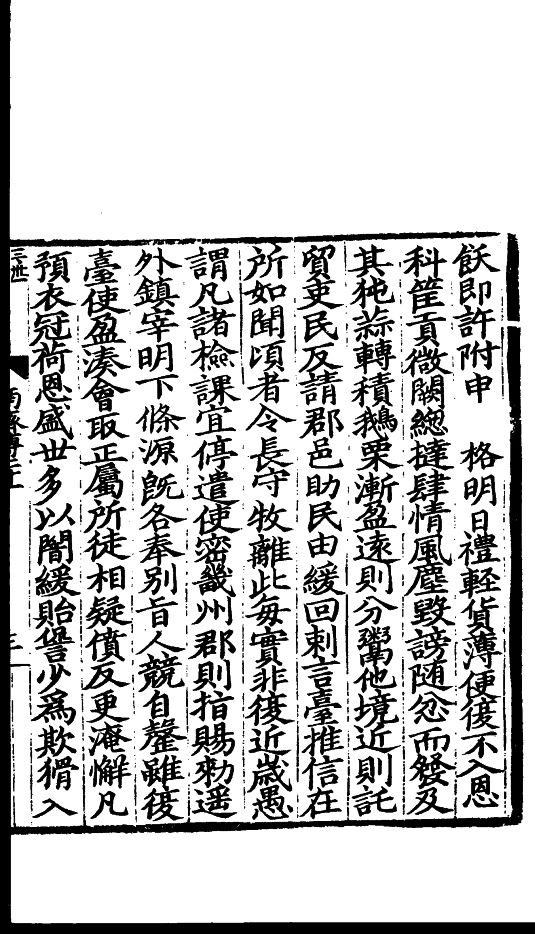 飫即許附申　　格明日禮輕貨薄便復不入恩
科筐貢微闕總撻肆情風塵毀謗隨忿而發及
其㹠蒜轉積鵝栗漸盈遠則分鬻他境近則託
貿吏民反請郡邑助民由緩回刺言臺推信在
所如聞頃者令長守牧離此每實非復近歲愚
謂凡諸檢課宜停遣使密畿州郡則指賜勑遥
外鎮宰明下條源旣各奉別旨人競自罄雖復
臺使盈湊會取正屬所徒相疑僨反更淹懈凡
預衣冠荷恩盛世多以闇緩貽諐少爲欺猾入
三世
三